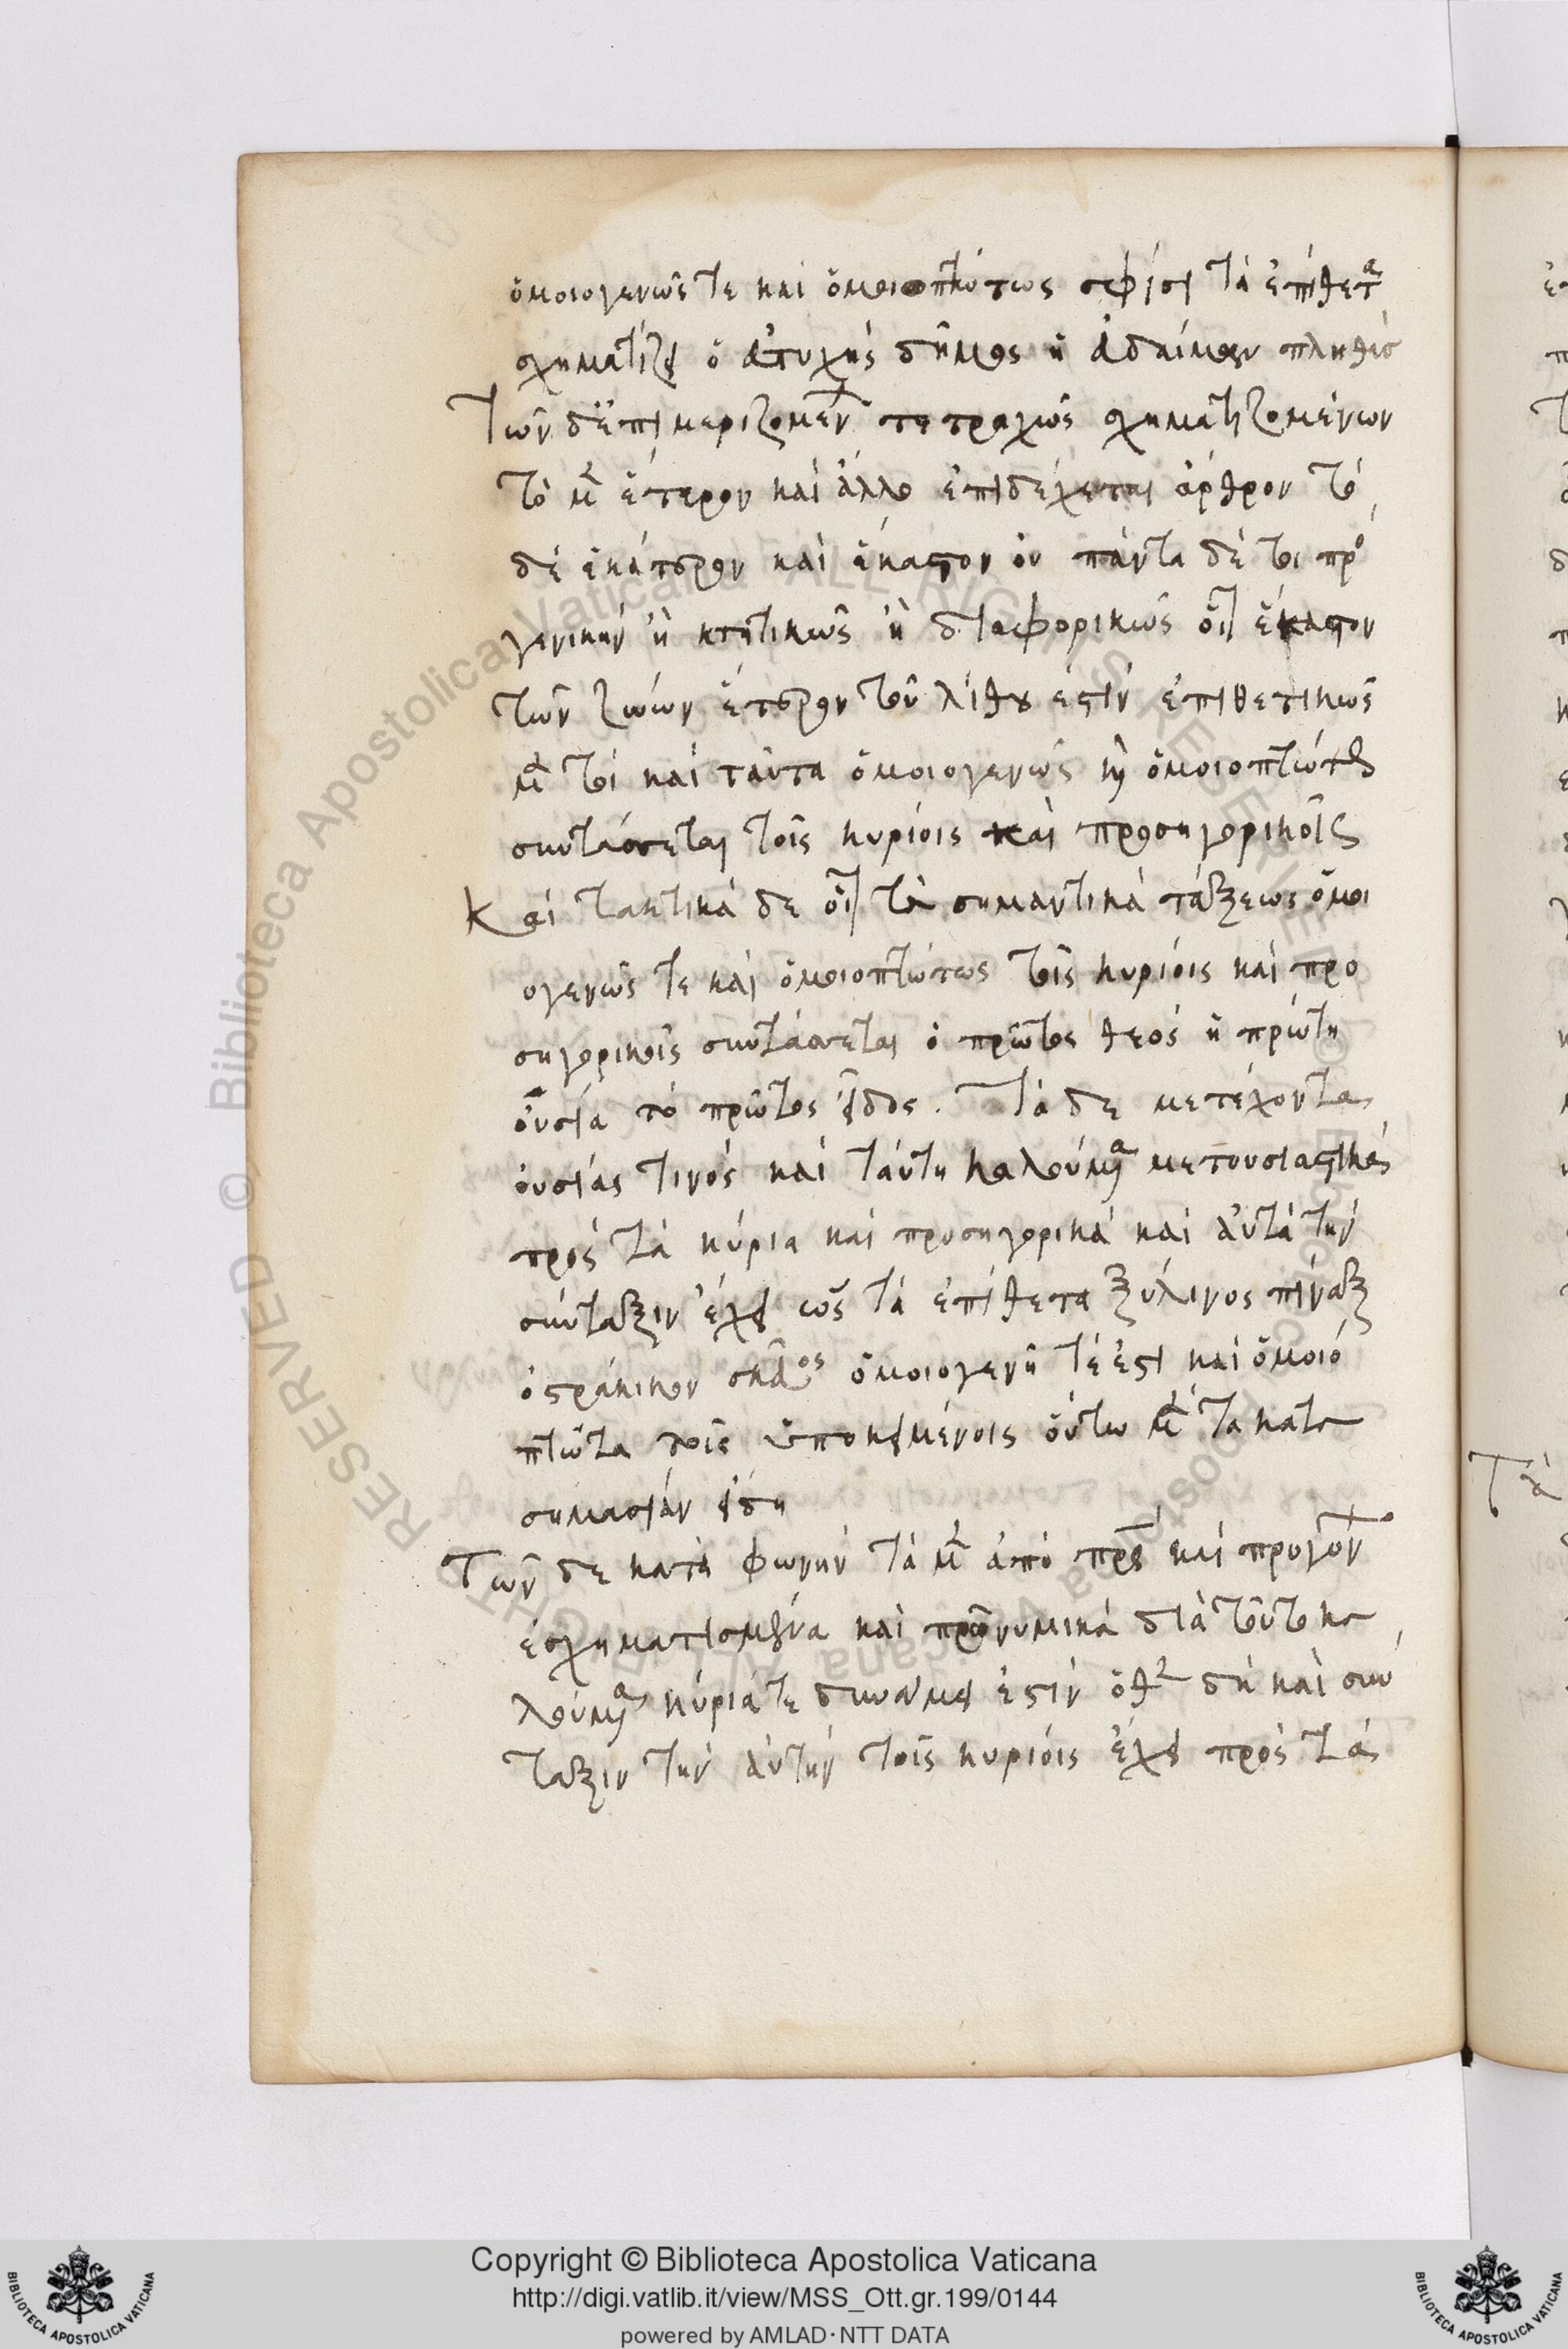 ὁμοιογενῶς τε καὶ ὁμοιοπτώτως σφίσι τὰ ἐπίθετα
σχηματίζει ὁ ἀτυχὴς δῆμος ἡ ἀδαίμων πληθὺς
Τῶν δ' ἐπιμεριζομένων τετραχῶς σχηματιζομένων
τὸ μὲν ἕτερον καὶ ἄλλο ἐπιδέχεται ἄρθρον τὸ
δὲ ἑκάτερον καὶ ἕκαστον οὐ πάντα δέ τοι πρὸ
γενικὴν ἢ κτητικῶς ἢ διαφορικῶς οἷον ἕκαστον
τῶν ζώων ἕτερον τοῦ λίθου ἐστὶν ἐπιθετικῶς
μέν τοι καὶ ταῦτα ὁμοιογενῶς καὶ ὁμοιοπτώτως
συντάσσεται τοῖς κυρίοις καὶ προσηγορικοῖς
Καὶ τακτικὰ δὲ οἷον τὰ σημαντικὰ τάξεως ὁμοι
ογενῶς τε καὶ ὁμοιοπτώτως τοῖς κυρίοις καὶ προ
σηγορικοῖς συντάσσεται ὁ πρῶτος θεὸς ἡ πρώτη
οὐσία τὸ πρῶτος εἶδος. Τὰ δὲ μετέχοντα
οὐσίας τινὸς καὶ ταύτη καλούμενα μετουσιαστικὰ
πρὸς τὰ κύρια καὶ προσηγορικὰ καὶ αὐτὰ τὴν
σύνταξιν ἔχει ὡς τὰ ἐπίθετα ξύλινος πίναξ
ὀστράκινον σκεῦος ὁμοιογενῆ τέ ἐστι καὶ ὁμοιό
πτωτα τοῖς ὑποκειμένοις οὕτω μὲν τὰ κατὰ
σημασίαν εἴδη
Τῶν δὲ κατὰ φωνὴν τὰ μὲν ἀπὸ πατρὸς καὶ προγόνων
ἐσχηματισμένα καὶ πατρωνυμικὰ διὰ τοῦτο κα
λούμενα κύριά τε δυνάμει ἐστὶν ὅθεν δὴ καὶ σύν
ταξιν τὴν αὐτὴν τοῖς κυρίοις ἔχει πρὸς τὰ
Copyright © Biblioteca Apostolica Vaticana
http://digi.vatlib.it/view/MSS_Ott.gr.199/0144
powered by AMLAD·NTT DATA